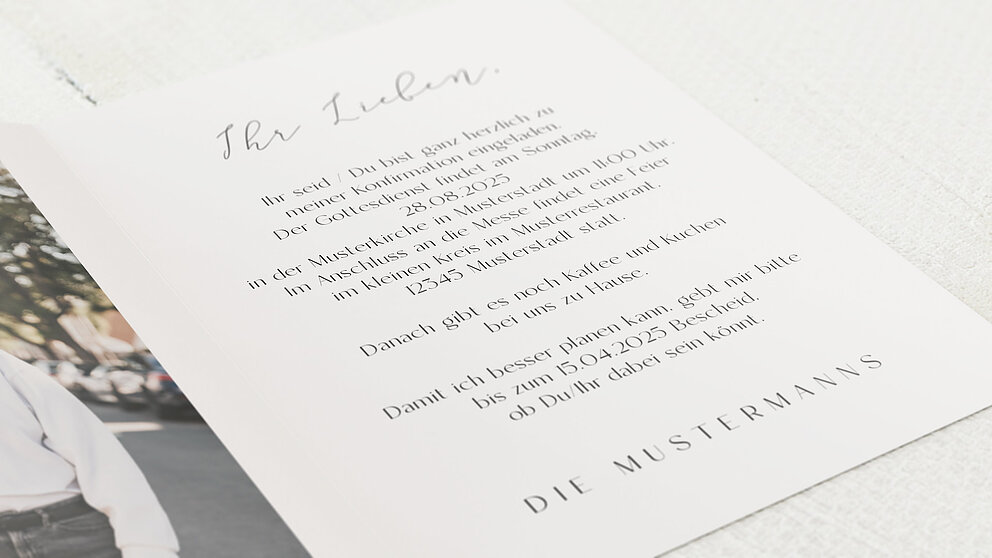 Ihr Lieben,
Ihr seid / Du bist ganz herzlich zu
meiner Konfirmation eingeladen.
Der Gottesdienst findet am Sonntag,
28.08.2025
in der Musterkirche in Musterstadt um 11:00 Uhr.
Im Anschluss an die Messe findet eine Feier
im kleinen Kreis im Musterrestaurant,
12345 Musterstadt statt.
Danach gibt es noch Kaffee und Kuchen
bei uns zu Hause.
Damit ich besser planen kann, gebt mir bitte
bis zum 15.04.2025 Bescheid,
ob Du/Ihr dabei sein könnt.
DIE MUSTERMANNS